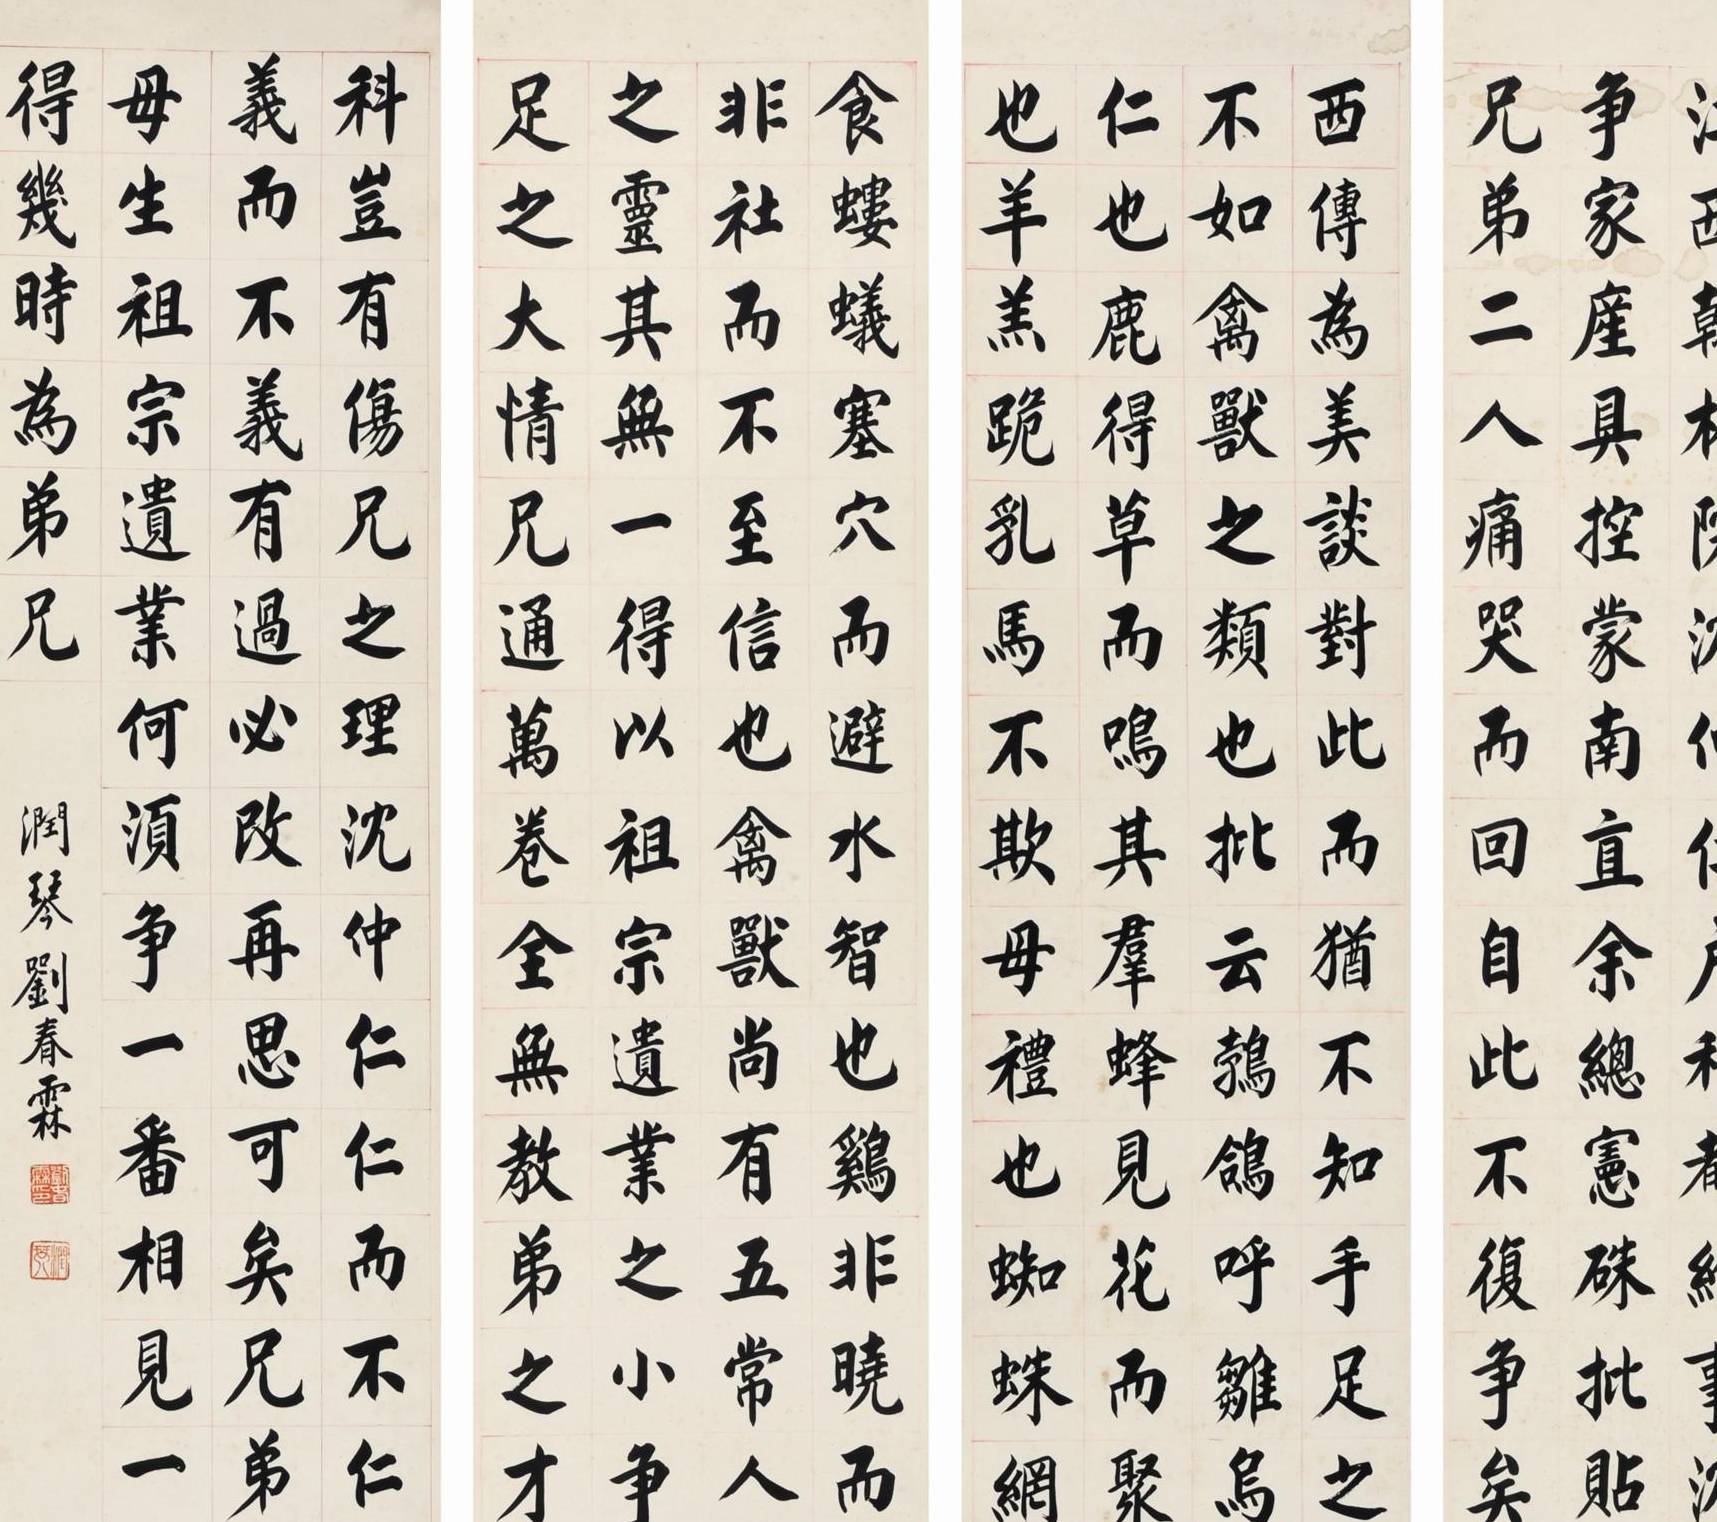 争家產具控蒙南直余總憲硃批貼
兄弟二人痛哭而回自此不復争矣
西傳為美談對此而猶不知手足之
不如禽獸之類也批云鵓鴿呼雛烏
仁也鹿得草而鳴其羣蜂見花而聚
也羊羔跪乳馬不欺母禮也蜘蛛網
食螻蟻塞穴而避水智也鷄非曉而
非社而不至信也禽獸尚有五常人
之靈其無一得以祖宗遺業之小争
足之大情兄通萬卷全無教弟之才
科豈有傷兄之理沈仲仁仁而不仁
義而不義有過必改再思可矣兄弟
母生祖宗遺業何湏争一番相見一
得幾時為弟兄
潤琴劉春霖